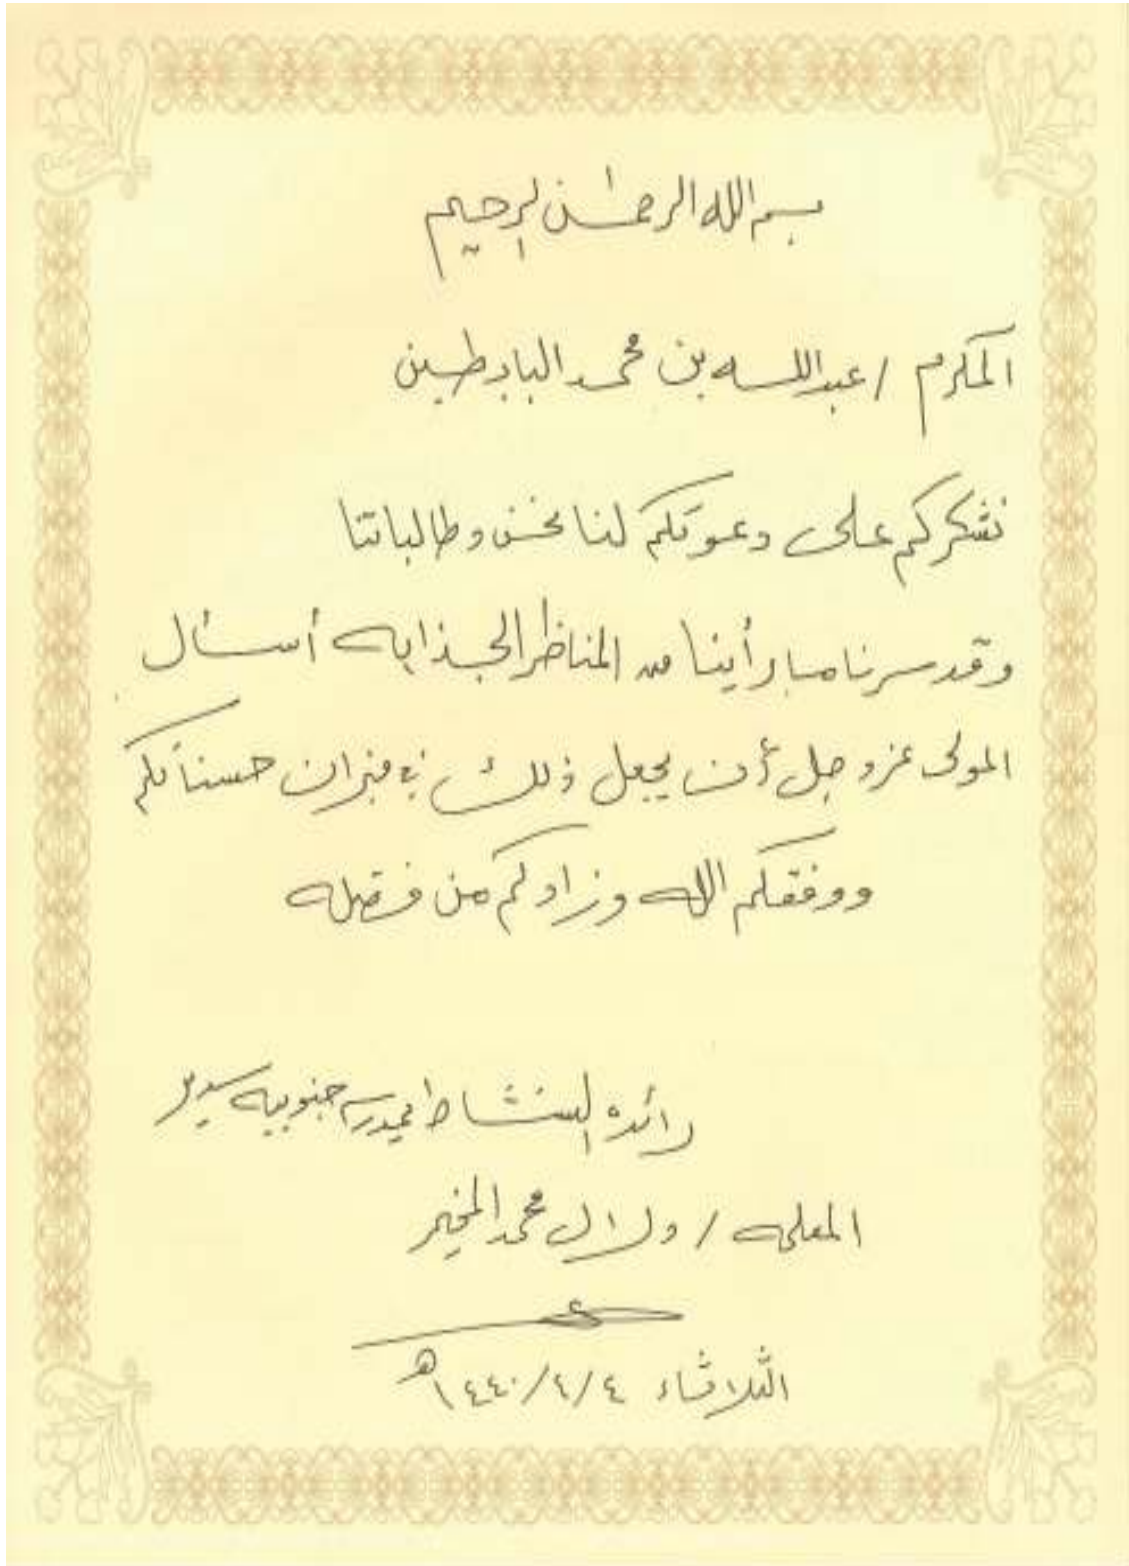 بسم الله الرحمن الرحيم
المكرم / عبدالله بن محمد البابطين
نشكركم على دعوتكم لنا نحن وطالباتنا
وقد سرنا ما رأينا من المناظر الجذابه أسأل
المولى عز وجل أن يجعل ذلك في ميزان حسناتكم
ووفقكم الله وزادكم من فضله
رائدة النشاط بمدرسه جنوبيه سدير
المعلمه / دلال محمد المخيمر
الثلاثاء ٤/٤/١٤٤٠هـ